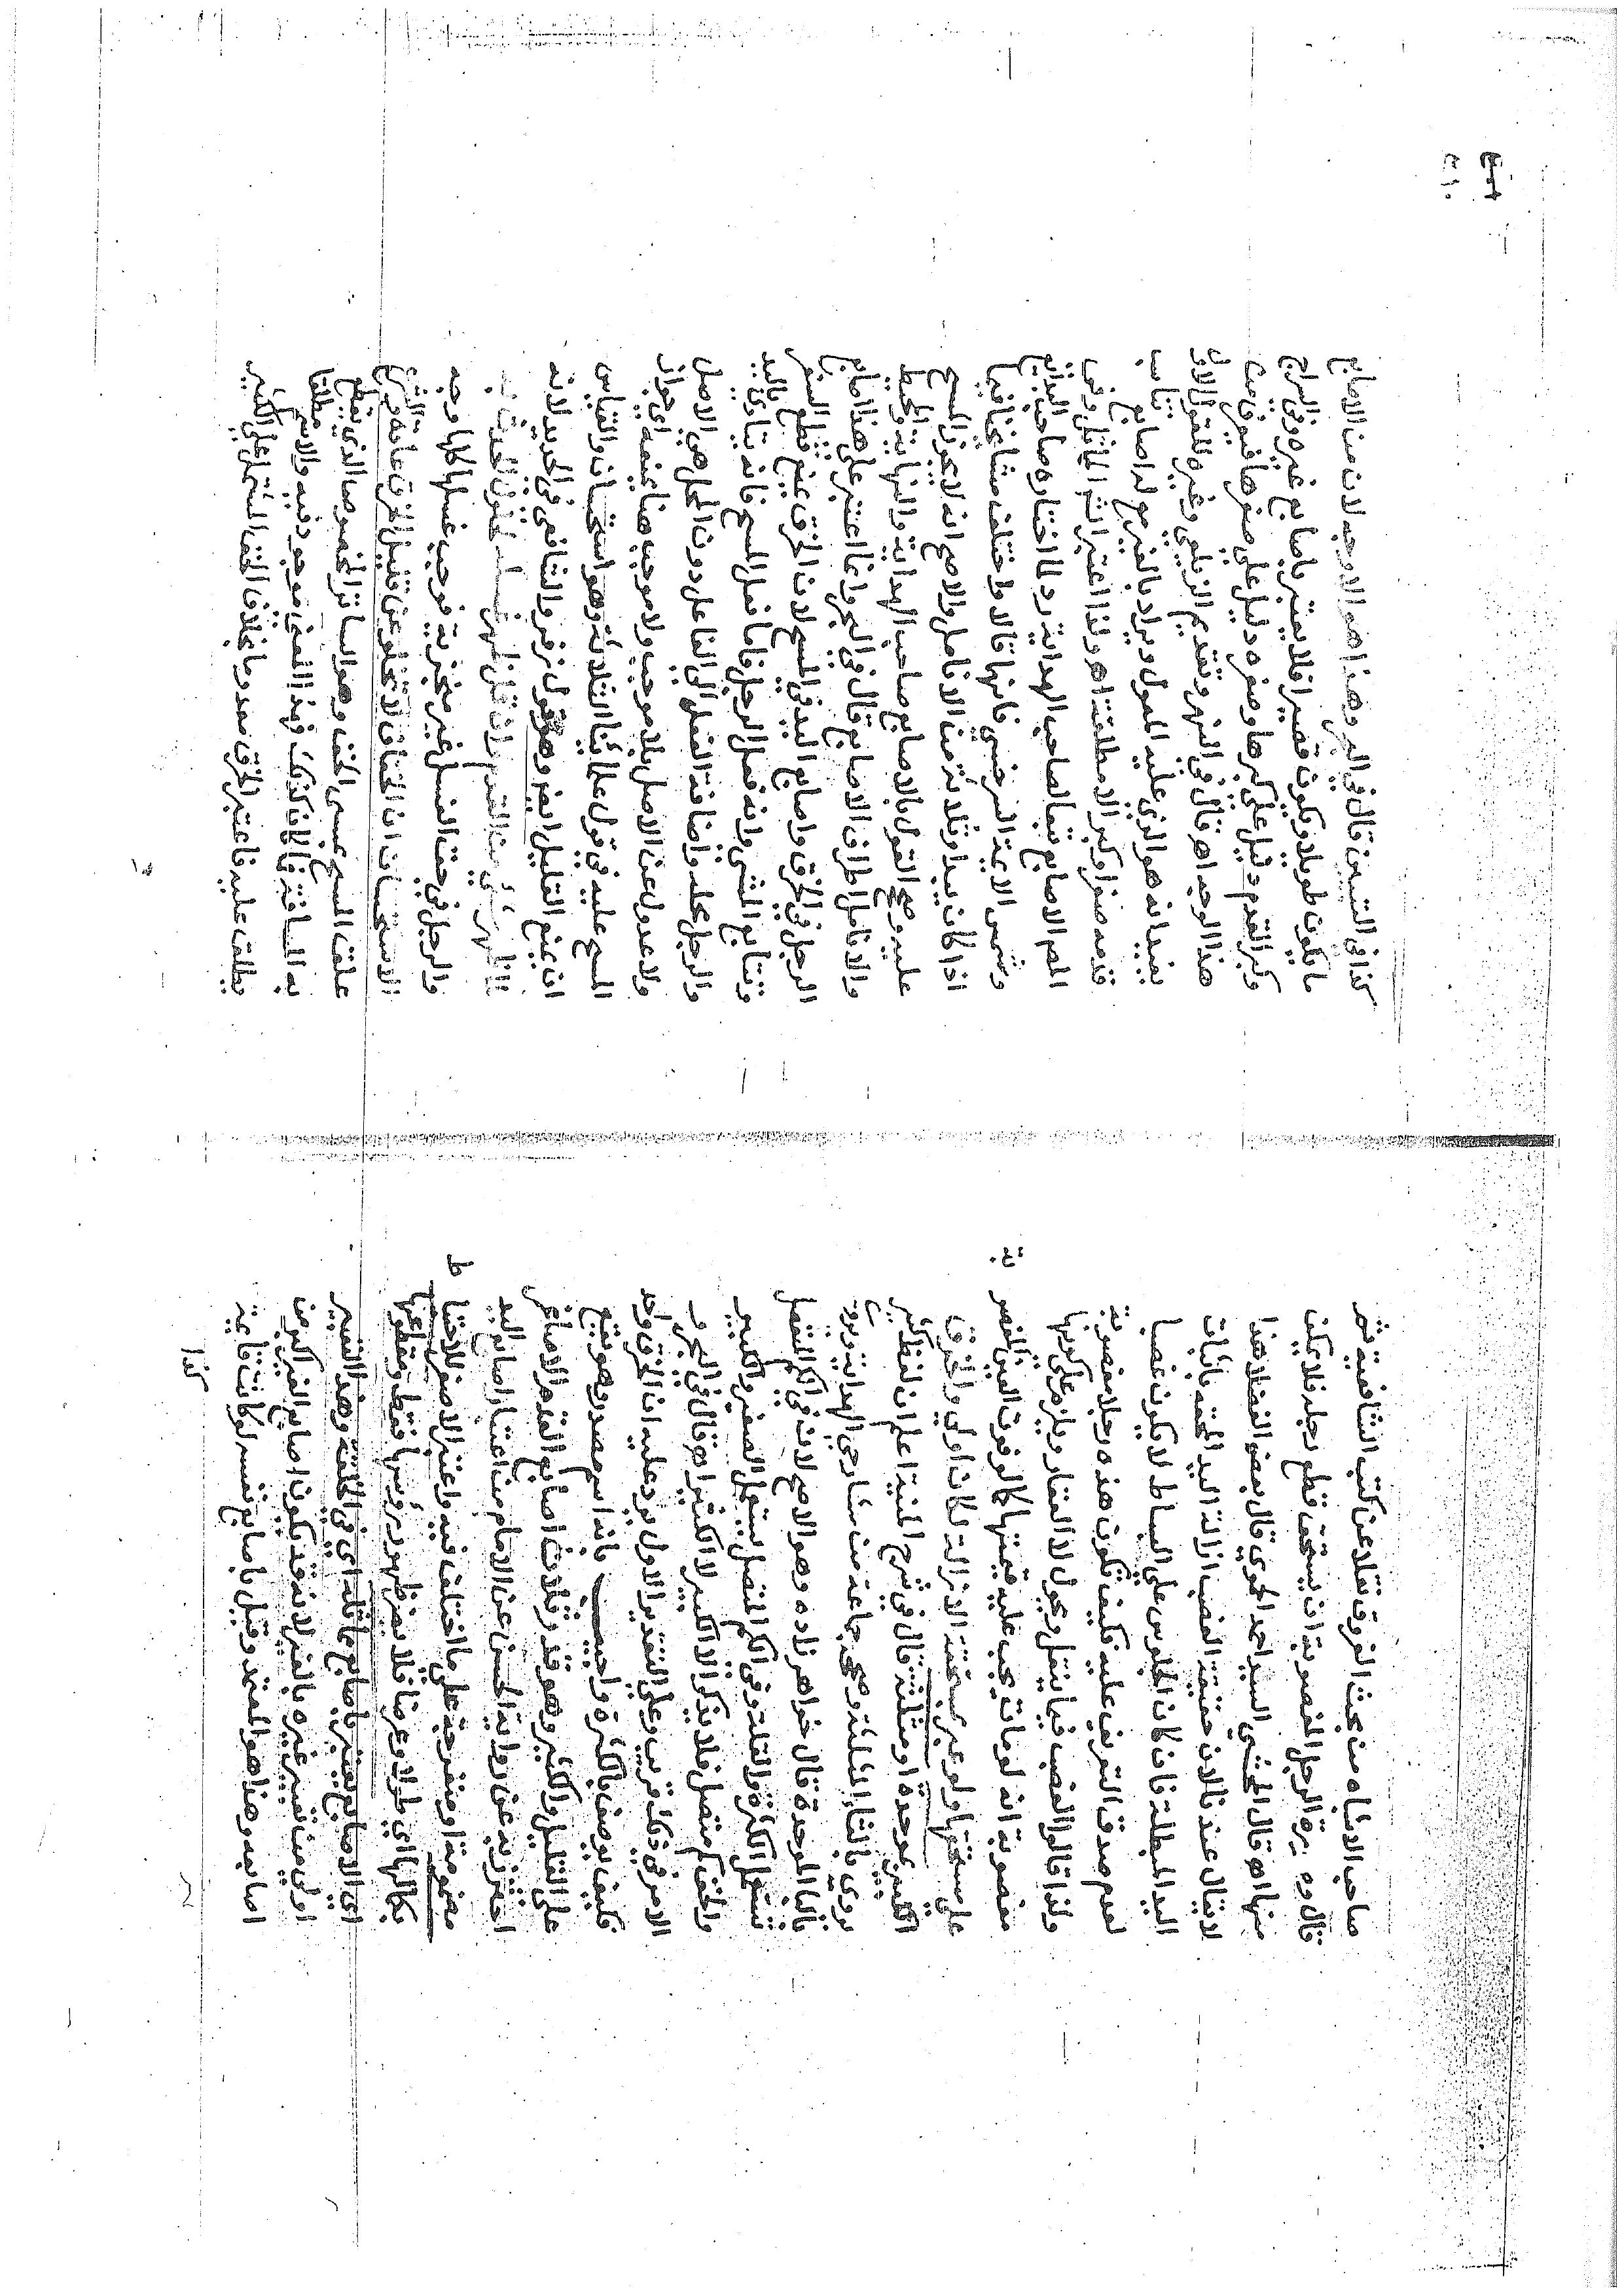 صاحب الاشباه من بحث الفروق نقلا عن كتب الشافعية ثم
قال الرجل المغصوبة ان يستحق قطع رجله فلا يمكن
منها اه قال المحشي السيد احمد الحموي قال بعض الفضلا هذا
لا يقال عندنا لان حقيقة الغصب ازالة اليد المحقة باثبات
اليد المبطلة فان كان الجلوس على البساط لا يكون غصبا
لعدم صدق التعريف عليه فكيف تكون هذه رجلا مغصوبة
ولذا قالوا الغصب فيما ينقل ويحول لا العقار ويلزم على كونها
مغصوبة انه لو مات يجب عليه قيمتها كما لو فوت العين المغصو
على مستحقها ولو عبر بمستحقة الازالة لكان اولى والخرق
الكبير بموحدة او مثلثة قال في شرح المنية اعلم ان لفظ كبير
يروى بالثاء المثلثة وصححه جماعة من شارحي الهداية ويروى
بالباء الموحدة قال خواهر زاده وهو الاصح لان في الكم المنفصل
تستعمل الكثرة والقلة وفي الكم المتصل يستعمل الصغير والكبير
والخف كم متصل فلا يذكر الا الكبير لا الكثير اه قال في البحر و
الامر في ذلك قريب وعلى التقدير الاول يرد عليه ان الخرق واحد
فكيف يوصف بالكثرة واجيب بانه اسم مصدر وهو يقع
على القليل والكثير وهو قدر ثلاث اصابع القدم الاصاغر
احترز به عن رواية الحسن عن الامام من اعتبار اصابع اليد
مضمومة او منفرجة على ما اختلف فيه واعتبر الاصغر للاحتيا ط
بكمالها اي طولا وعرضا فلا يضر ظهور رؤسها فقط ومقطوعها
اي الاصابع يعتبر باصابع مماثلة اي في الخلقة وهذا التفسير
اولى من تفسير غيره بالغير لانه قد يكون اصابع الغير اكبر من
اصابعه وهذا هو المعتمد وقيل باصابع نفسه لو كانت قائمة
كذا
كذا في التبيين قال في البحر وهذا هو الاوجه لان من الاصابع
ما يكون طويلا ويكون قصيرا فلا يعتبر باصابع غيره وفي السراج
وكبر القدم دليل على كبرها وصغره دليل على صغرها فيعرف من
هذا الوجه اه قال في النهر وتقديم الزيلعي وغيره للقول الاول
يفيد انه هو الذي عليه المعول ويراد بالغير من له اصابع تناسب
قدمه صغرا وكبرا لا مطلقا اه ولذا اعتبر المماثل وفي
المص الاصابع تبعا لصاحب الهداية ردا لما اختاره صاحب البدائع
وشمس الائمة السرخسي فانهما قالا واختلف مشايخنا فيما
اذا كان يبدو ثلاثة من الانامل والاصح انه لا يجوز المسح
عليه وصحح القول بالاصابع صاحب الهداية والنهاية والمحيط
والانامل اطراف الاصابع قال في البحر وانما اعتبر على هذا اصابع
الرجل في الخرق واصابع اليد في المسح لان الخرق يمنع قطع السفر
وتتابع المشي وانه فعل الرجل فاما فعل المسح فانه يتأدى باليد
والرجل محله واضافة الفعل الى الفاعل دون المحل هي الاصل
ولا عدول عن الاصل بلا موجب ولا موجب هنا يمنعه اي جواز
المسح عليه في قول علمائنا الثلاثة وهو استحسان والقياس
ان يمنع القليل ايضا وهو قول زفر والشافعي في الجديد لانه
لما ظهر شي من القدم وان قل ظهر غسله لحلول الحدث به
والرجل في حق الغسل غير متجزية فوجب غسلها كلها وجه
الاستحسان ان الخفاف لا تخلو عن قليل الخرق عادة والشرع
علق المسح بمسمى الخف وهو الساتر المخصوص الذي يقطع
به المسافة كذلك وهذا المعنى موجود فيه والاسم مطلقا
يطلق عليه فاعتبر الخرق معدوما بخلاف الخف المشتمل على الكثير